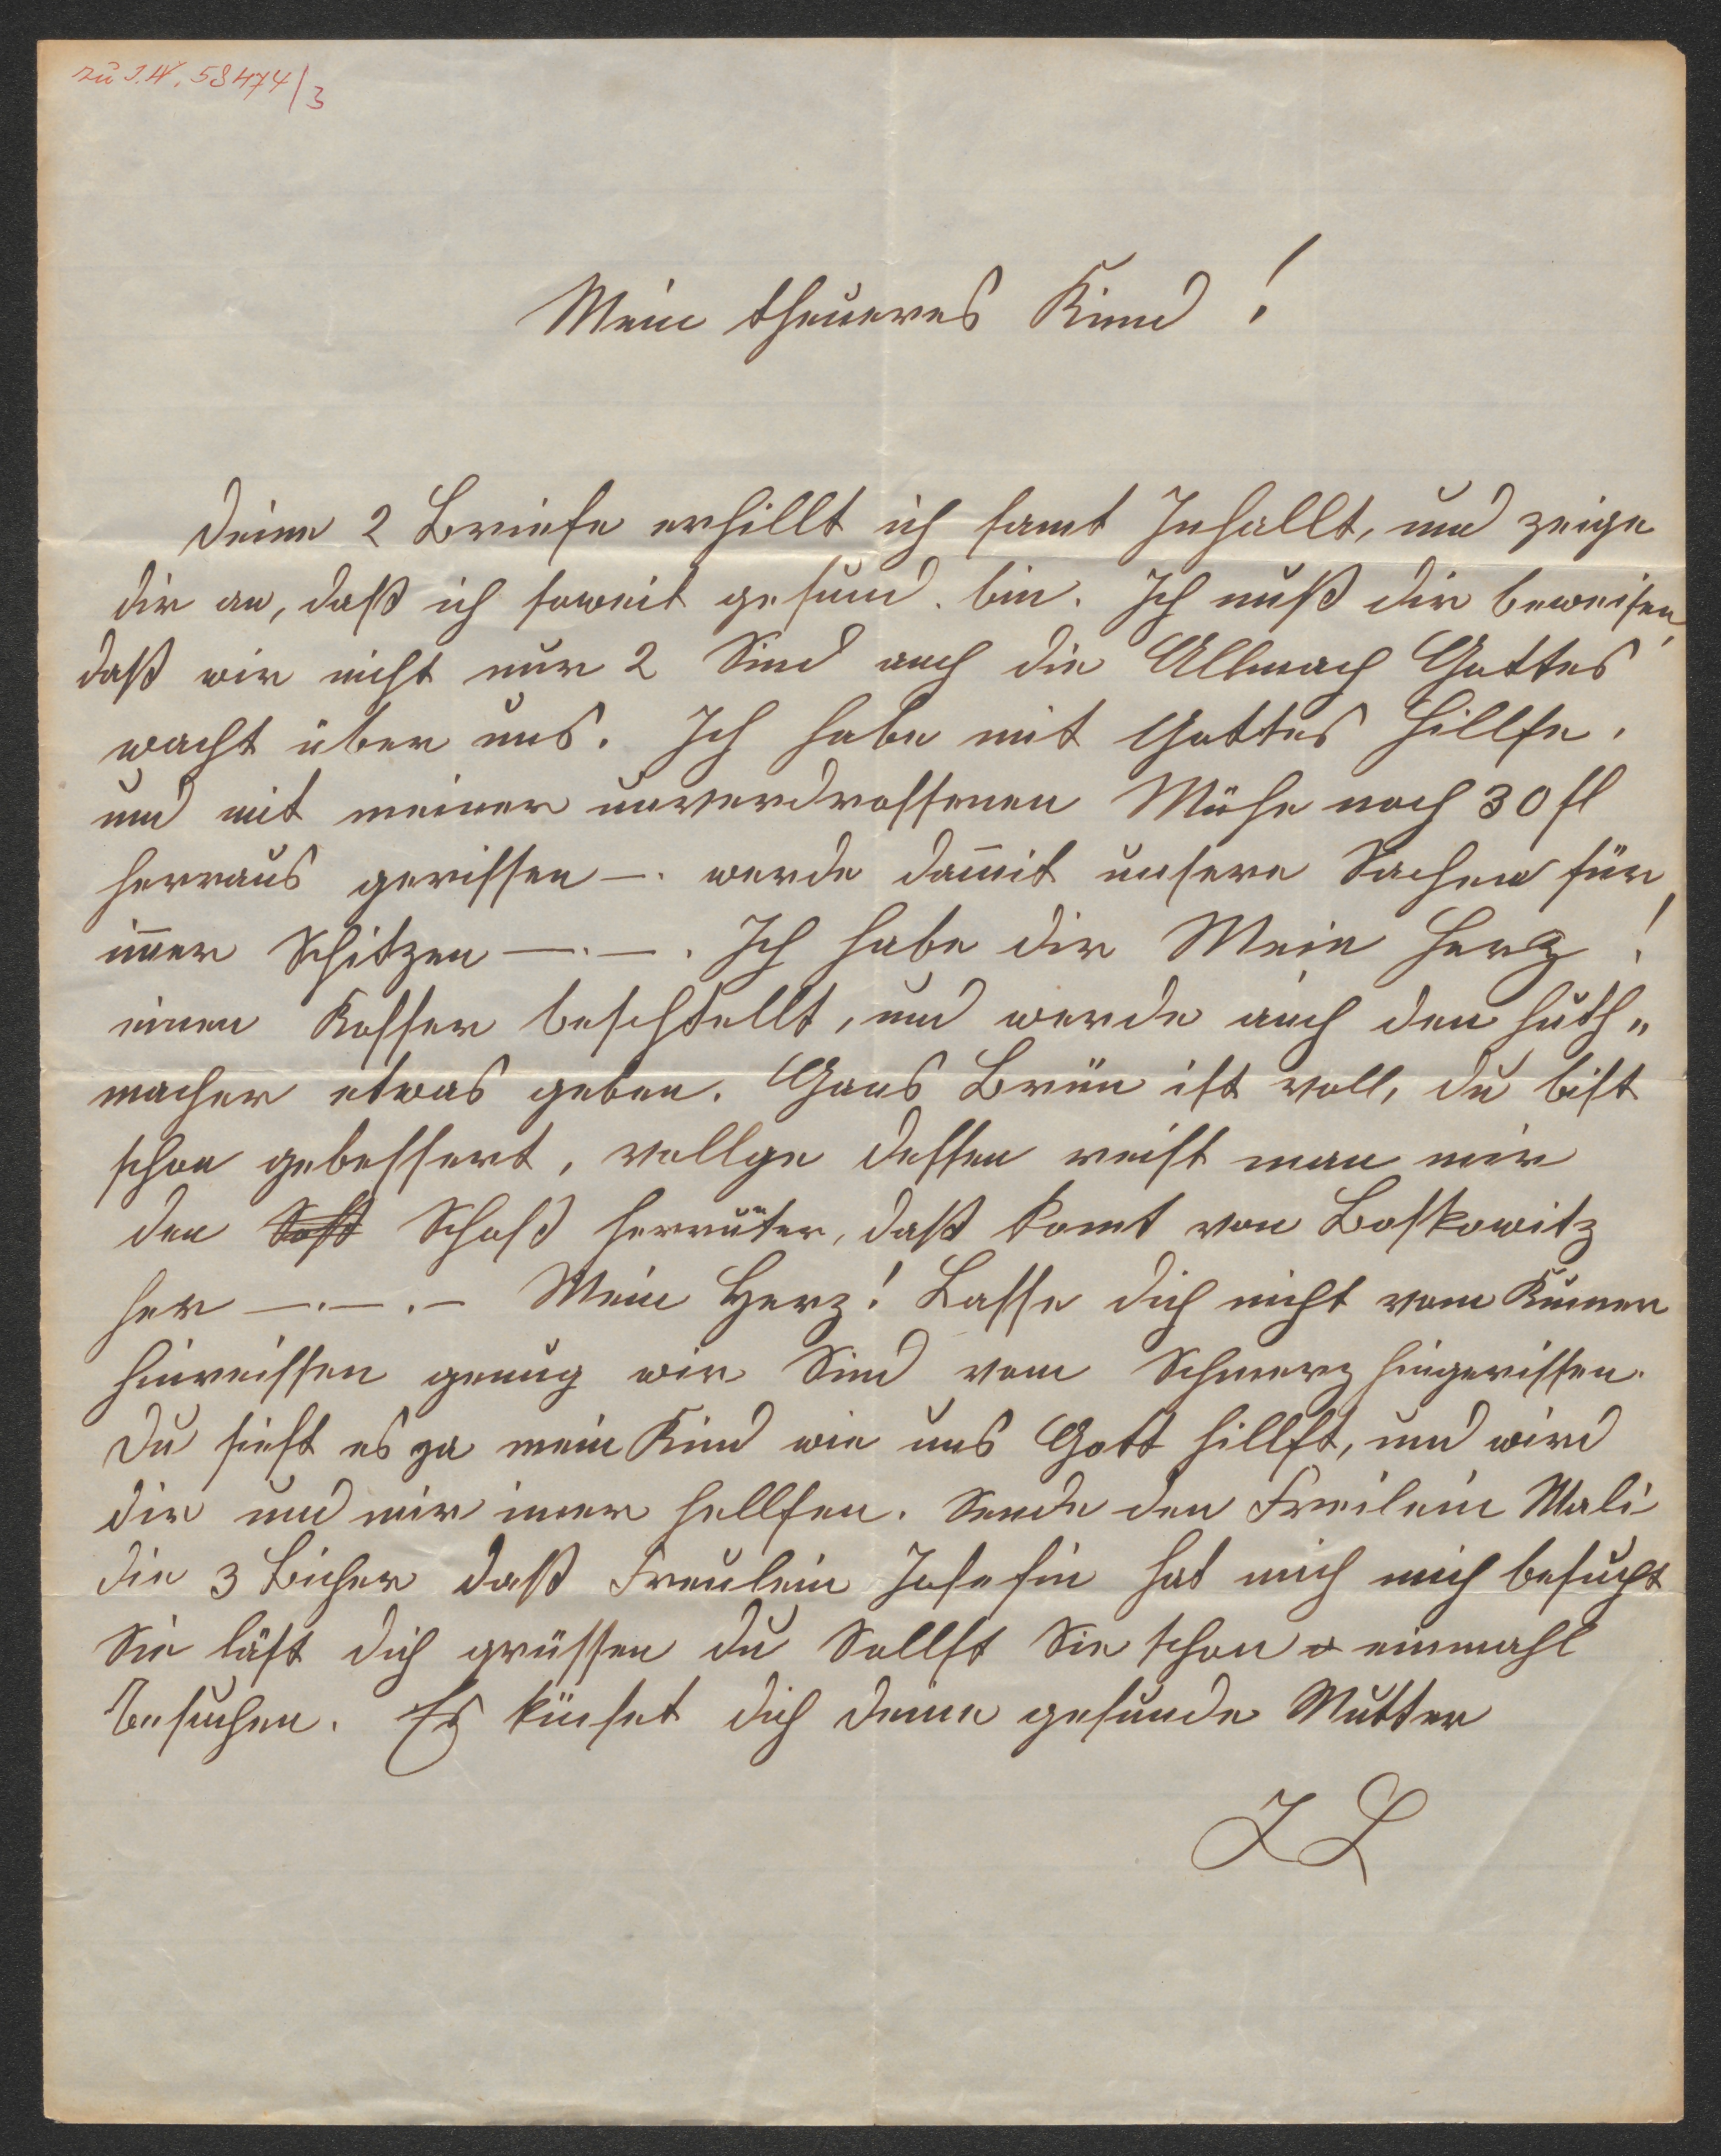 zu I.N. 58474/3
Mein theueres Kind!
Deine 2 Briefe erhillt ich samt Inhallt, und zeige
dir an, daß ich soweit gesund. bin. Ich muß dir beweisen,
daß wir nicht nur 2 Sind auch die Allmach Gottes
wacht über uns. Ich habe mit Gottes Hillfe.
und mit meiner unverdrossenen Mühe noch 30 fl
herraus gerissen —. werde dam̄it unsere Sachen für
im̄er Schitzen —.—. Ich habe dir Mein Herz!
einen Koffer beschtellt, und werde auch den Huth„
macher etwas geben. Gans Brün ist voll, du bist
schon gebessert, vollge dessen reist man mir
den Soß Schoß herrunter, daß komt von Boskowitz
her —.—.— Mein Herz! Lasse dich nicht vom Kum̄er
hinreissen genug wir Sind vom Schmerz hingerissen.
Du siehst es ja mein Kind wie uns Gott hillft, und wird
dir und mir imer hellfen. Sende den Freilein Mali
die 3 Bicher daß Freulein Josefin hat mich mich besucht
Sie läst dich grüssen du Sollst Sie schon einmahl
besuchen. Es küsset dich deine gesunde Mutter
J L